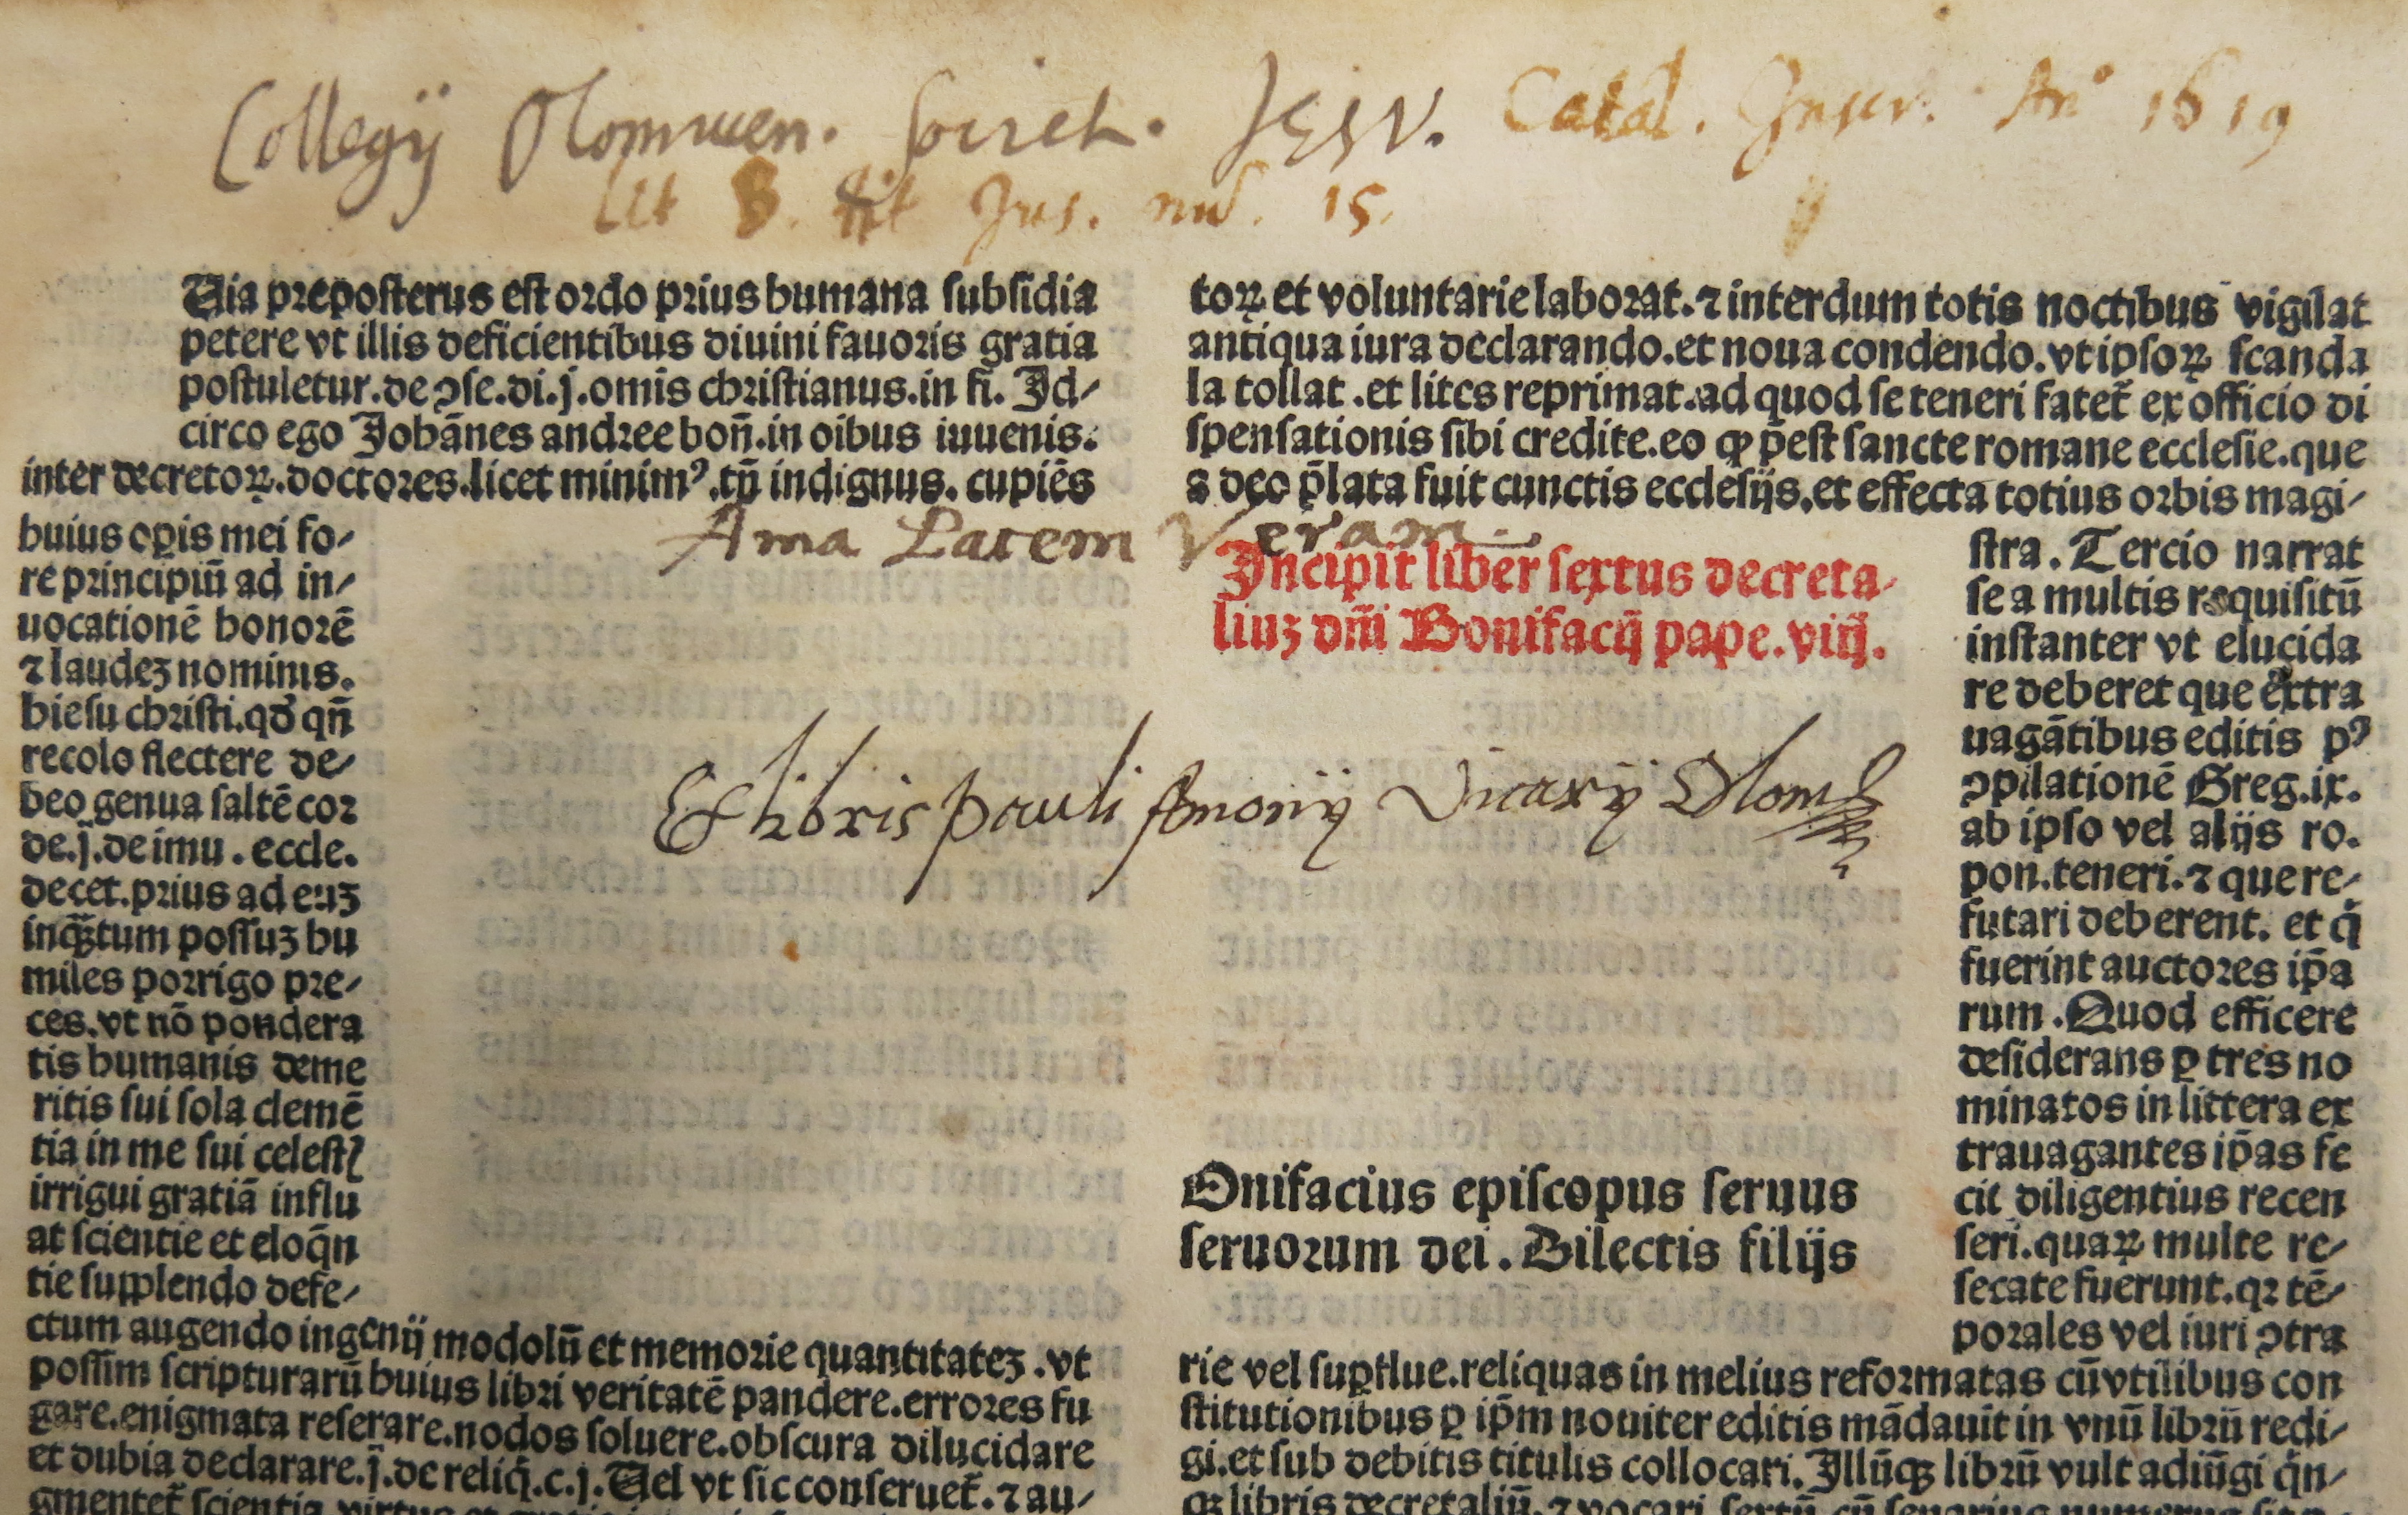 Collegij Olomucen. Societ. Jesv. Catal. Inscr. Anº 1619
Lit B. tit Jus. nu͂. 15.
Uia preposterus est ordo prius humana subsidia
petere vt illis deficientibus diuini fauoris gratia
postuletur.de ↄse.di.j.omīs christianus.in fi. Id-
circo ego Johānes andree boñ.in oībus iuuenis.
inter decretoꝝ.doctores.licet minimꝰ.tñ indignus. cupiēs
huius opis mei fo-
re principiū ad in-
uocationē honorē
⁊ laudeʒ nominis.
hiesu christi.qđ qñ
recolo flectere de-
beo genua saltē cor
de.j.de imu. eccle.
decet.prius ad euʒ
inqꝫtum possuʒ hu
miles porrigo pre-
ces.vt nō pondera
tis humanis deme
ritis sui sola clemē
tia in me sui celestꝭ
irrigui gratiā influ
at scientie et eloq̄n
tie supplendo defe-
ctum augendo ingenij modolū et memorie quantitateʒ.vt
possim scripturarū huius libri veritatē pandere.errores fu
gare.enigmata reserare.nodos soluere.obscura dilucidare
et dubia declarare.j.de reliq̄.c.j.Uel vt sic conseruet̄.⁊ au-
gmentet̄ scientia
toꝝ et voluntarie laborat.⁊ interdum totis noctibus vigilat
antiqua iura declarando.et noua condendo.vt ipsoꝝ scanda
la tollat.et lites reprimat.ad quod se teneri fatet̄ ex officio di
spensationis sibi credite.eo ꝙ p̄est sancte romane ecclesie.que
a deo p̄lata fuit cunctis ecclesijs.et effecta totius orbis magi-
stra. Tercio narrat
se a multis requisitū
instanter vt elucida
re deberet que extra
uagātibus editis pꝰ
ↄpilationē Greg.ix.
ab ipso vel alijs ro.
pon.teneri.⁊ que re-
futari deberent. et q̄
fuerint auctores ip̄a
rum.Quod efficere
desiderans ꝑ tres no
minatos in littera ex
trauagantes ip̄as fe
cit diligentius recen
seri.quaꝝ multe re-
secate fuerunt.qꝛ tē-
porales vel iuri ↄtra
rie vel suꝑflue.reliquas in melius reformatas cū vtilibus con
stitutionibus ꝑ ip̄m nouiter editis mādauit in vnū librū redi-
gi.et sub debitis titulis collocari.Illūqꝫ librū vult adiūgi q̄n-
qꝫ libris decretaliū.⁊ vocari sextū
Ama Pacem Veram.
Incipit liber sextus decreta-
liuʒ dñi Bonifacij pape.viij.
Ex libris Pauli Amonij Vicarij Olom
Onifacius episcopus seruus
seruorum dei. Dilectis filijs